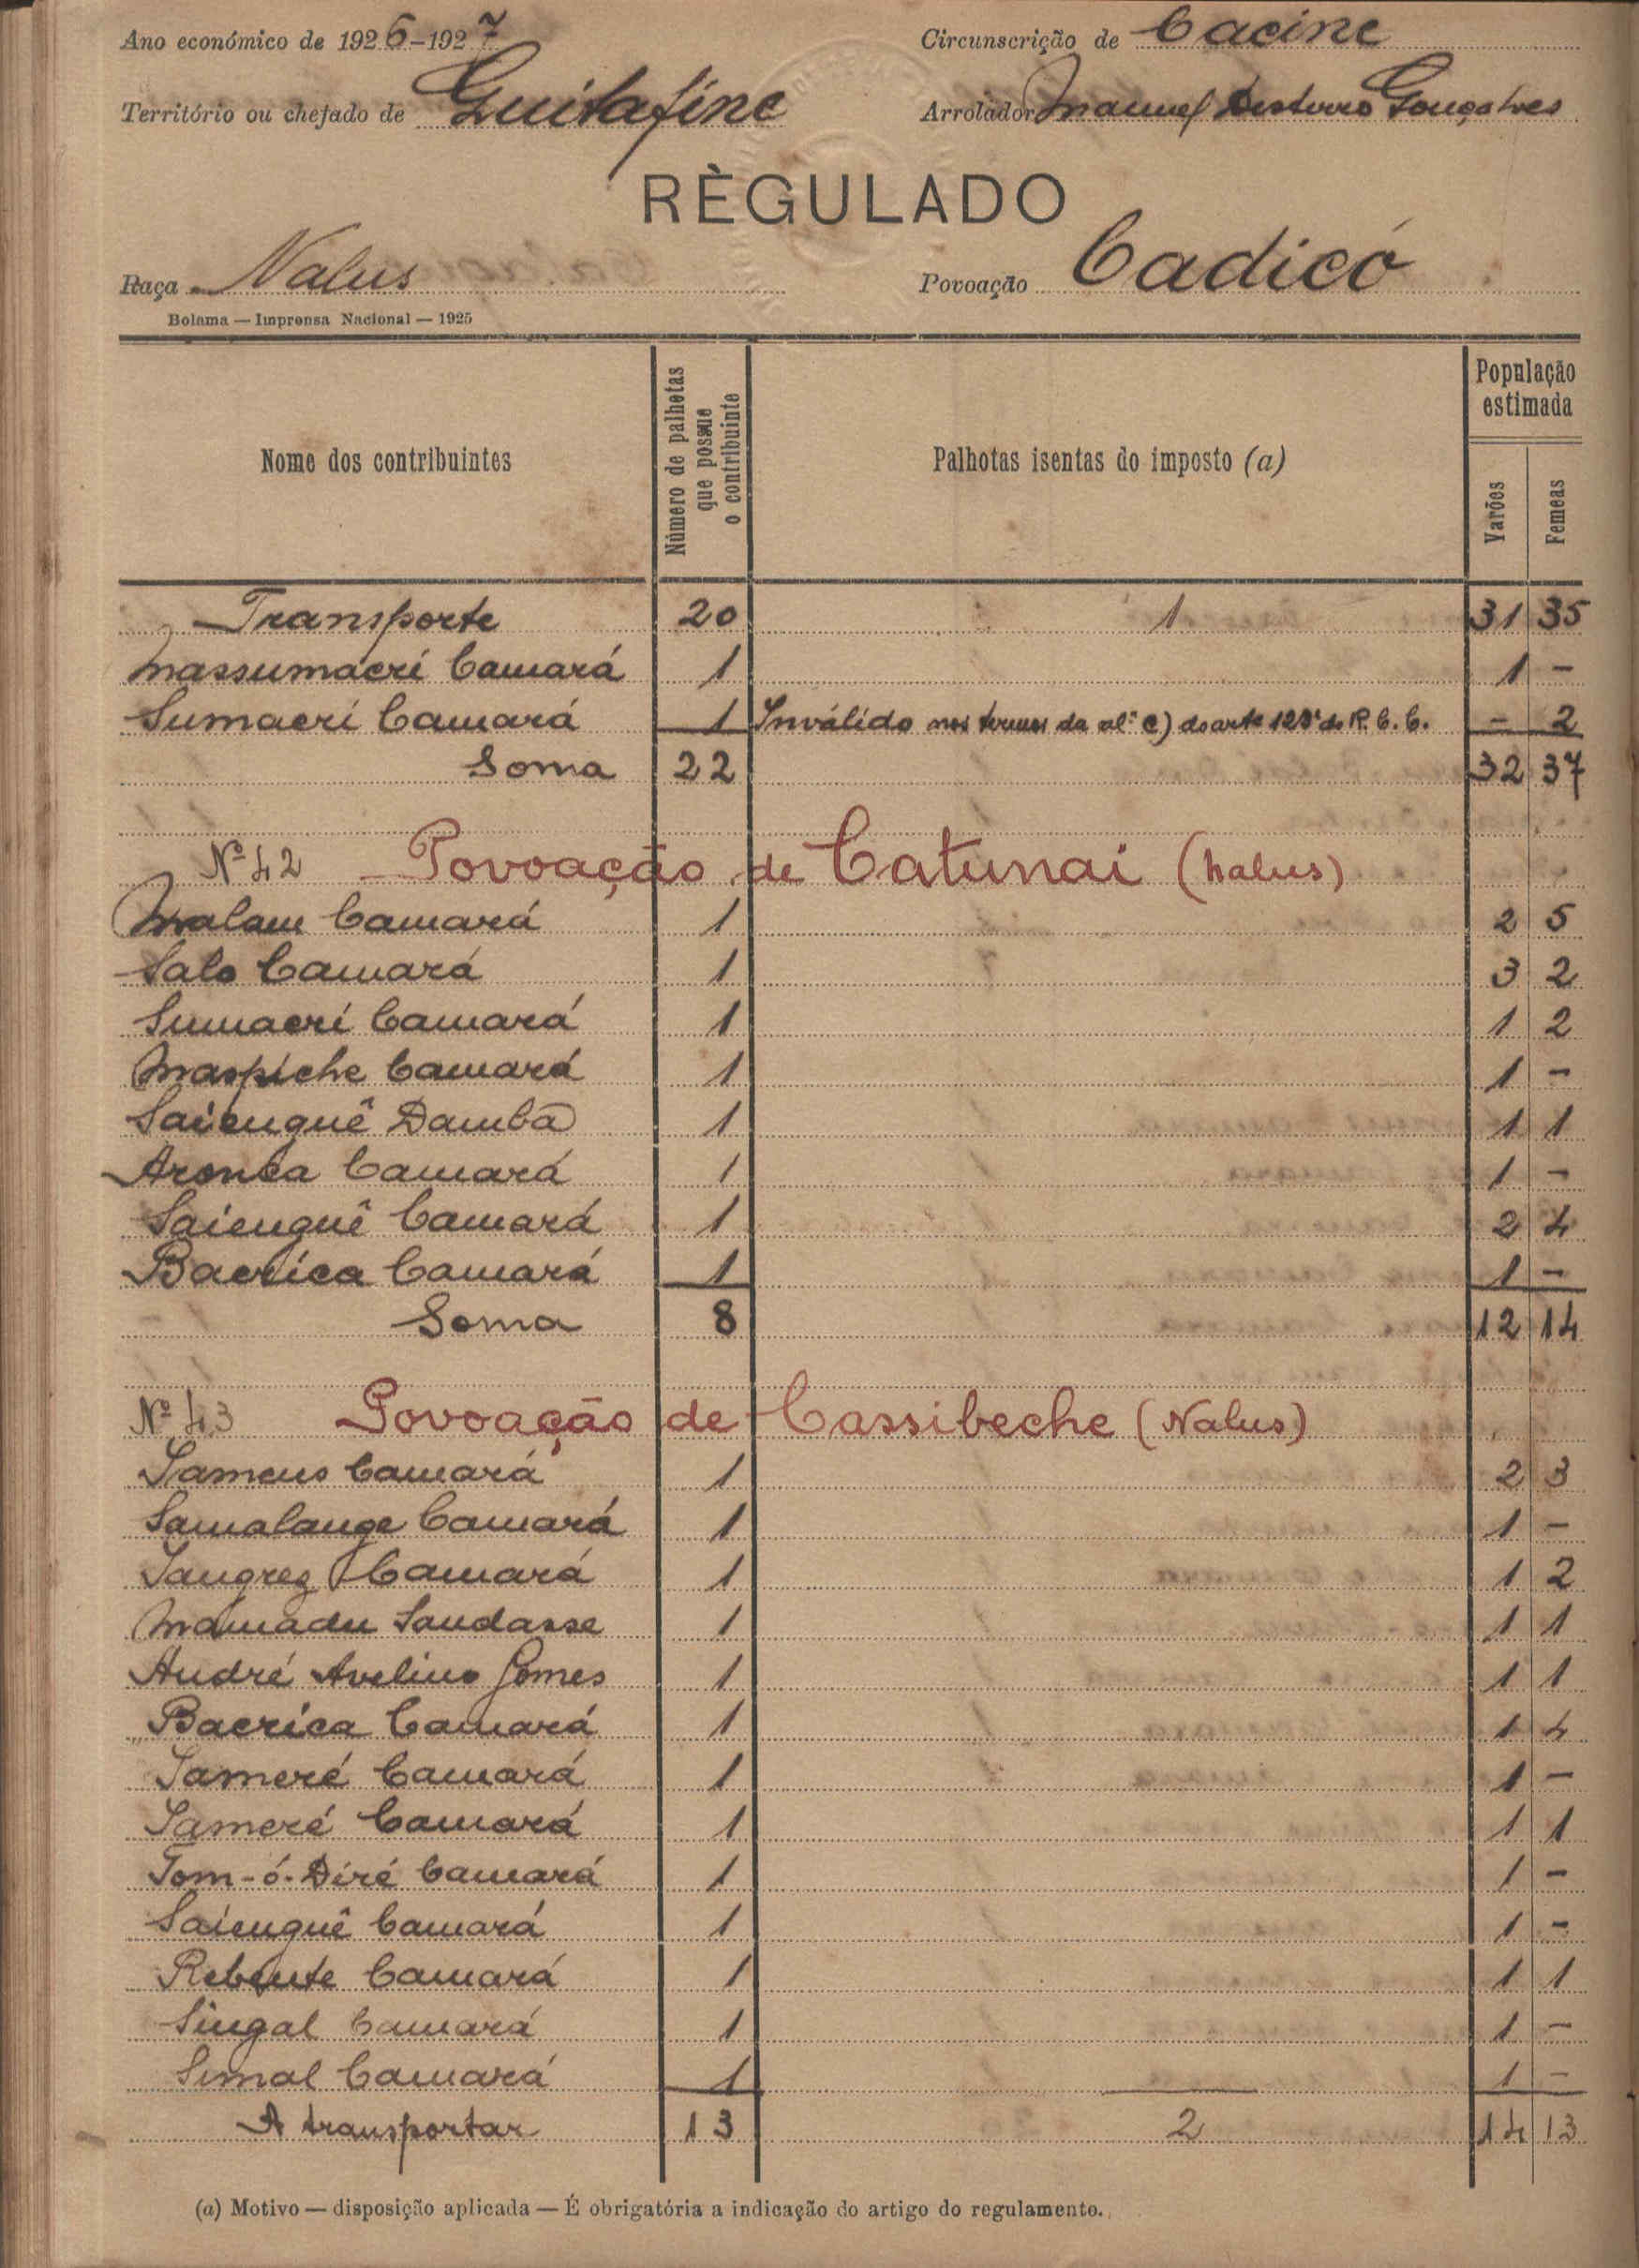 Ano económico de 1926-1927 Circunscrição de Cacine
Território ou chefado de Guitafine Arrolador Manuel Desterro Gonçalves
RÈGULADO
Raça Nalus Povoação Cadicó
Bolama — Imprensa Nacional — 1925
Nome dos contribuintes Número de palhotas que possue o contribuinte Palhotas isentas do imposto (a) População estimada Varões Femeas
Transporte 20 1 31 35
Massumacri Camará 1 1 -
Sumacri Camará 1 Inválido nos termos da al.ª c) do arte 123º do R. C. C. - 2
Soma 22 32 37
Nº 42 Povoação de Catunai (Nalus)
Malam Camará 1 2 5
Salo Camará 1 3 2
Sumacri Camará 1 1 2
Maspiche Camará 1 1 -
Saienguê Dambā 1 1 1
Camará 1 1 -
Saienguê Camará 1 2 4
Bacrica Camará 1 1 -
Soma 8 12 14
Nº 43 Povoação de Cassibeche (Nalus)
Camará 1 2 3
Samalange Camará 1 1 -
Camará 1 1 2
Mamadu Sandasse 1 1 1
André Avelino Gomes 1 1 1
Bacrica Camará 1 1 4
Sameré Camará 1 1 -
Sameré Camará 1 1 1
Tom-ó-Diré Camará 1 1 -
Saienguê Camará 1 1 -
Rebente Camará 1 1 1
Singal Camará 1 1 -
Simal Camará 1 1 -
A transportar 13 2 14 13
(a) Motivo — disposição aplicada — É obrigatória a indicação do artigo do regulamento.